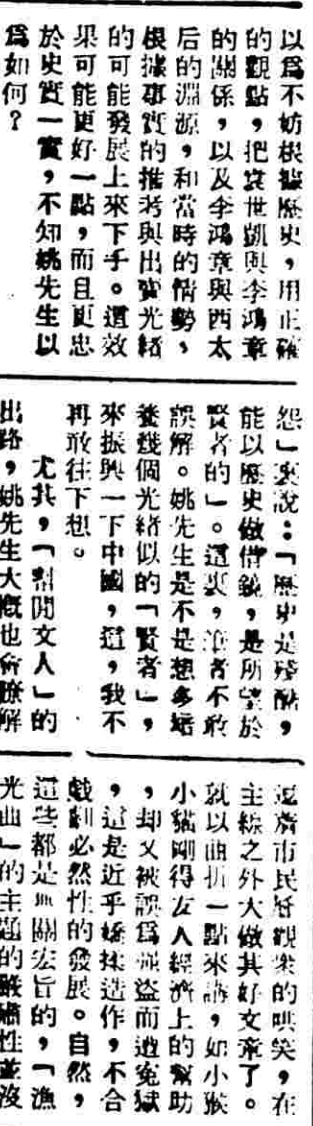 以爲不妨根據歷史，用正確
的觀點，把袁世凱與李鴻章
的關係，以及李鴻章與西太
后的淵源，和當時的情勢、
根據事實的推考與出賣光緒
的可能發展上來下手。這效
果可能更好一點，而且更忠
於史實一實，不知姚先生以
爲如何？
怨」裏說：「歷史是殘酷，
能以歷史做借鏡，是所望於
賢者的」。這裏，筆者不敢
誤解。姚先生是不是想多培
養幾個光緒似的「賢者」，
來振興一下中國，這，我不
再敢往下想。
尤其，「幫閒文人」的
出路，姚先生大概也會瞭解
市民層觀衆的哄笑，在
主線之外大做其好文章了。
就以曲折一點來講，如小猴
小貓剛得友人經濟上的幫助
，却又被誤爲強盜而遭冤獄
，這是近乎矯揉造作，不合
戲劇必然性的發展。自然，
這些都是無關宏旨的，「漁
光曲」的主題的嚴肅性並沒